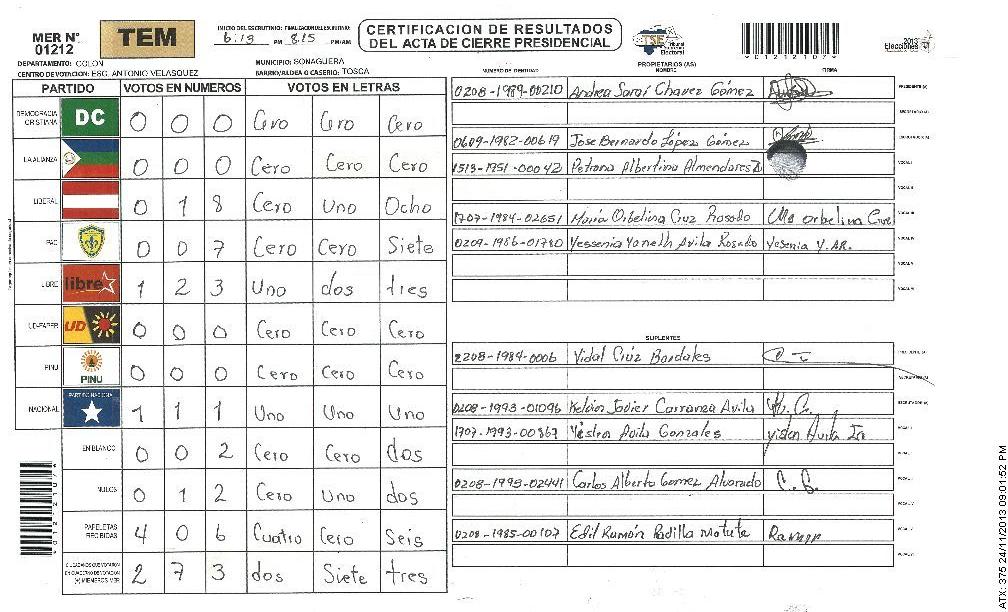 MER N° 01212
TEM
INICIO DEL ESCRUTINIO: 6:13 PM FINALIZACION DEL ESCRUTINIO: 8:15 PM/AM
CERTIFICACION DE RESULTADOS
DEL ACTA DE CIERRE PRESIDENCIAL
TSE Tribunal Supremo Electoral
0121210 7
2013 Elecciones
DEPARTAMENTO: COLON
MUNICIPIO: SONAGUERA
CENTRO DE VOTACION: ESC. ANTONIO VELASQUEZ
BARRIO/ALDEA O CASERIO: TOSCA
PARTIDO VOTOS EN NUMEROS VOTOS EN LETRAS
DEMOCRACIA CRISTIANA DC 0 0 0 Cero Cero Cero
LA ALIANZA 0 0 0 Cero Cero Cero
LIBERAL 0 1 8 Cero Uno Ocho
PAC 0 0 7 Cero Cero Siete
LIBRE libre 1 2 3 Uno dos tres
UD-FAPER UD 0 0 0 Cero Cero Cero
PINU PINU 0 0 0 Cero Cero Cero
NACIONAL PARTIDO NACIONAL 1 1 1 Uno Uno Uno
EN BLANCO 0 0 2 Cero Cero dos
NULOS 0 1 2 Cero Uno dos
PAPELETAS RECIBIDAS 4 0 6 Cuatro Cero Seis
CIUDADANOS QUE VOTARON EN CUADERNO DE VOTACION (+) MIEMBROS MER 2 7 3 dos Siete tres
PROPIETARIOS (AS)
NUMERO DE IDENTIDAD NOMBRE FIRMA
0208-1989-00210 Andrea Saraí Chavez Gómez PRESIDENTE (A)
SECRETARIO (A)
0609-1982-00619 Jose Bernardo López Gómez ESCRUTADOR (A)
1513-1951-00042 Petrona Albertina Almendares VOCAL I
VOCAL II
1707-1984-02651 Maria Orbelina Cruz Rosado Ma orbelina Cruz VOCAL III
0209-1986-01780 Yessenia Yaneth Avila Rosado Yesenia Y. AR. VOCAL IV
VOCAL V
VOCAL VI
SUPLENTES
2208-1984-0006 Vidal Cruz Bardales PRESIDENTE (A)
SECRETARIO (A)
0208-1993-01096 Kelvin Javier Carranza Avila ESCRUTADOR (A)
1707-1993-00867 Avila Gonzales VOCAL I
VOCAL II
0208-1993-02441 Carlos Alberto Gomez Alvarado C. G. VOCAL III
VOCAL IV
0208-1985-00107 Edil Ramón Padilla Matute Ramon VOCAL V
VOCAL VI
ATX: 375 24/11/2013 09:01:52 PM